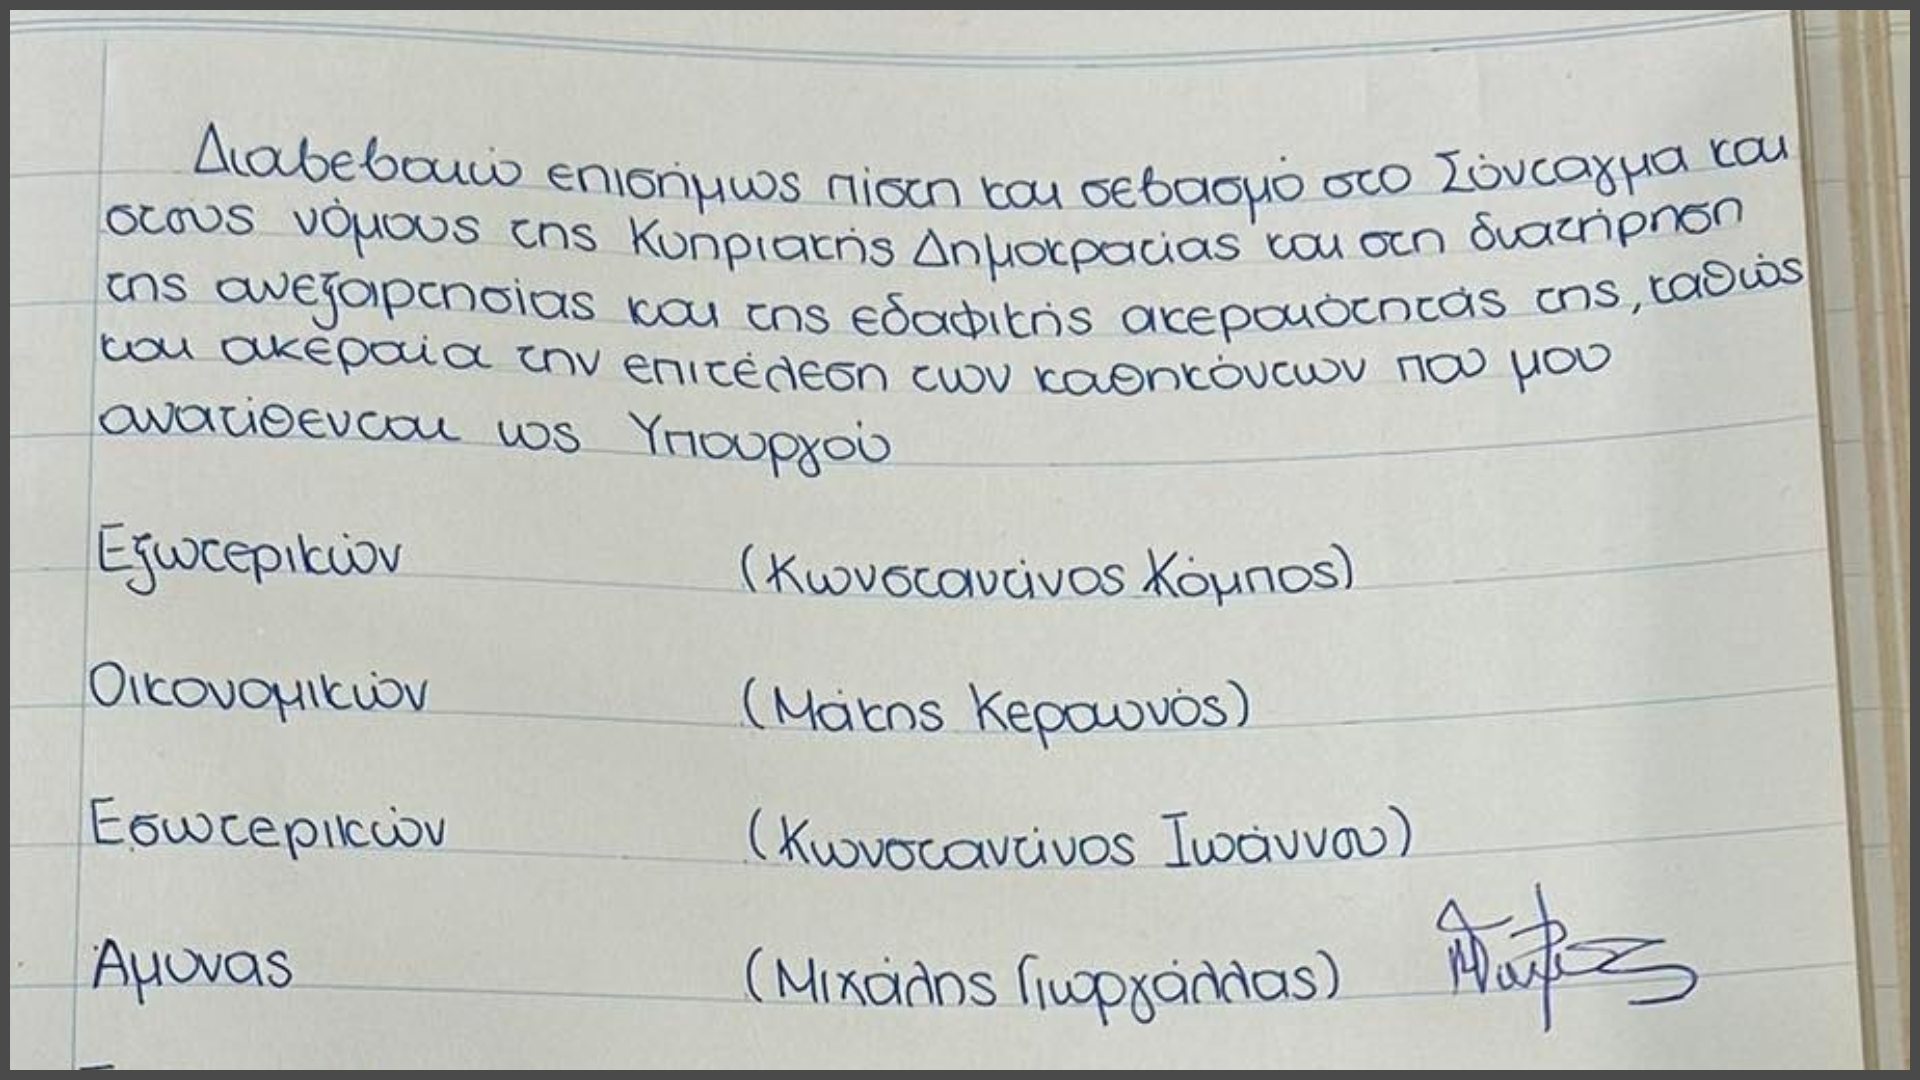 Διαβεβαιώ επισήμως πίστη και σεβασμό στο Σύνταγμα και
στους νόμους της Κυπριακής Δημοκρατίας και στη διατήρηση
της ανεξαρτησίας και της εδαφικής ακεραιότητάς της, καθώς
και ακέραια την επιτέλεση των καθηκόντων που μου
ανατίθενται ως Υπουργού
Εξωτερικών (Κωνσταντίνος Κόμπος)
Οικονομικών (Μάκης Κεραυνός)
Εσωτερικών (Κωνσταντίνος Ιωάννου)
Άμυνας (Μιχάλης Γιωργάλλας)